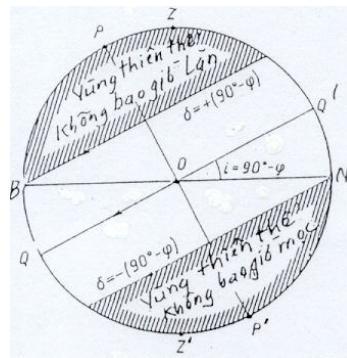 Z
P
Vùng thiên thể
không bao giờ lặn
δ=+(90°-φ)
Q'
B
O
i=90°-φ
N
Q
δ=-(90°-φ)
Vùng thiên thể
không bao giờ mọc
Z'
P'